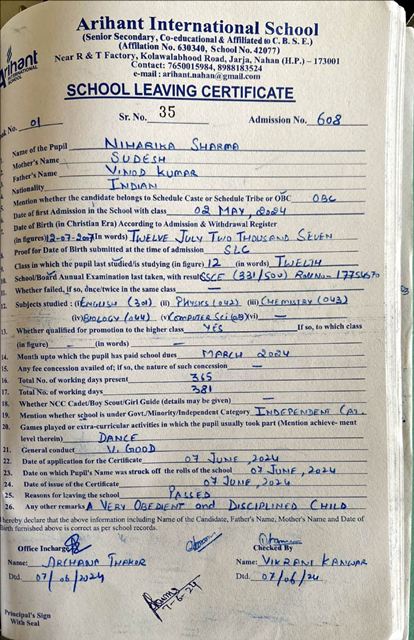 Arihant International School
(Senior Secondary, Co-educational & Affiliated to C. B. S. E.)
(Affilation No. 630340, School No. 42077)
Near R & T Factory, Kolawalabhood Road, Jarja, Nahan (H.P.) – 173001
Contact: 7650015984, 8988183524
e-mail : arihant.nahan@gmail.com
Arihant
INTERNATIONAL SCHOOL
SCHOOL LEAVING CERTIFICATE
Sr. No. 35
Book No. 01 Admission No. 608
1. Name of the Pupil NIHARIKA SHARMA
2. Mother's Name SUDESH
3. Father's Name VINOD KUMAR
4. Nationality INDIAN
5. Mention whether the candidate belongs to Schedule Caste or Schedule Tribe or OBC OBC
6. Date of first Admission in the School with class 02 MAY, 2024
7. Date of Birth (in Christian Era) According to Admission & Withdrawal Register
(in figures) 12-07-2007 (in words) TWELVE JULY TWO THOUSAND SEVEN
8. Proof for Date of Birth submitted at the time of admission SLC
9. Class in which the pupil last studied/is studying (in figure) 12 (in words) TWELTH
10. School/Board Annual Examination last taken, with result SSCE (331/500) Roll No-
11. Whether failed, if so, once/twice in the same class —
12. Subjects studied : (i) ENGLISH (301) (ii) PHYSICS (042) (iii) CHEMISTRY (043)
(iv) BIOLOGY (044) (v) COMPUTER SCI (083) (vi) —
13. Whether qualified for promotion to the higher class YES If so, to which class
(in figure) — (in words) —
14. Month upto which the pupil has paid school dues MARCH 2024
15. Any fee concession availed of; if so, the nature of such concession —
16. Total No. of working days present 365
17. Total No. of working days 381
18. Whether NCC Cadet/Boy Scout/Girl Guide (details may be given) —
19. Mention whether school is under Govt./Minority/Independent Category INDEPENDENT
20. Games played or extra-curricular activities in which the pupil usually took part (Mention achieve- ment
level therein) DANCE
21. General conduct V. GOOD
22. Date of application for the Certificate 07 JUNE, 2024
23. Date on which Pupil's Name was struck off the rolls of the school 07 JUNE, 2024
24. Date of issue of the Certificate 07 JUNE, 2024
25. Reasons for leaving the school PASSED
26. Any other remarks A VERY OBEDIENT and DISCIPLINED CHILD
I hereby declare that the above information including Name of the Candidate, Father's Name, Mother's Name and Date of
Birth furnished above is correct as per school records.
Office Incharge Checked By
Name: ARCHANA THAKUR Name: VIKRANI KANWAR
Dtd. 07/06/2024 Dtd. 07/06/24
7-6-24
Principal's Sign
With Seal